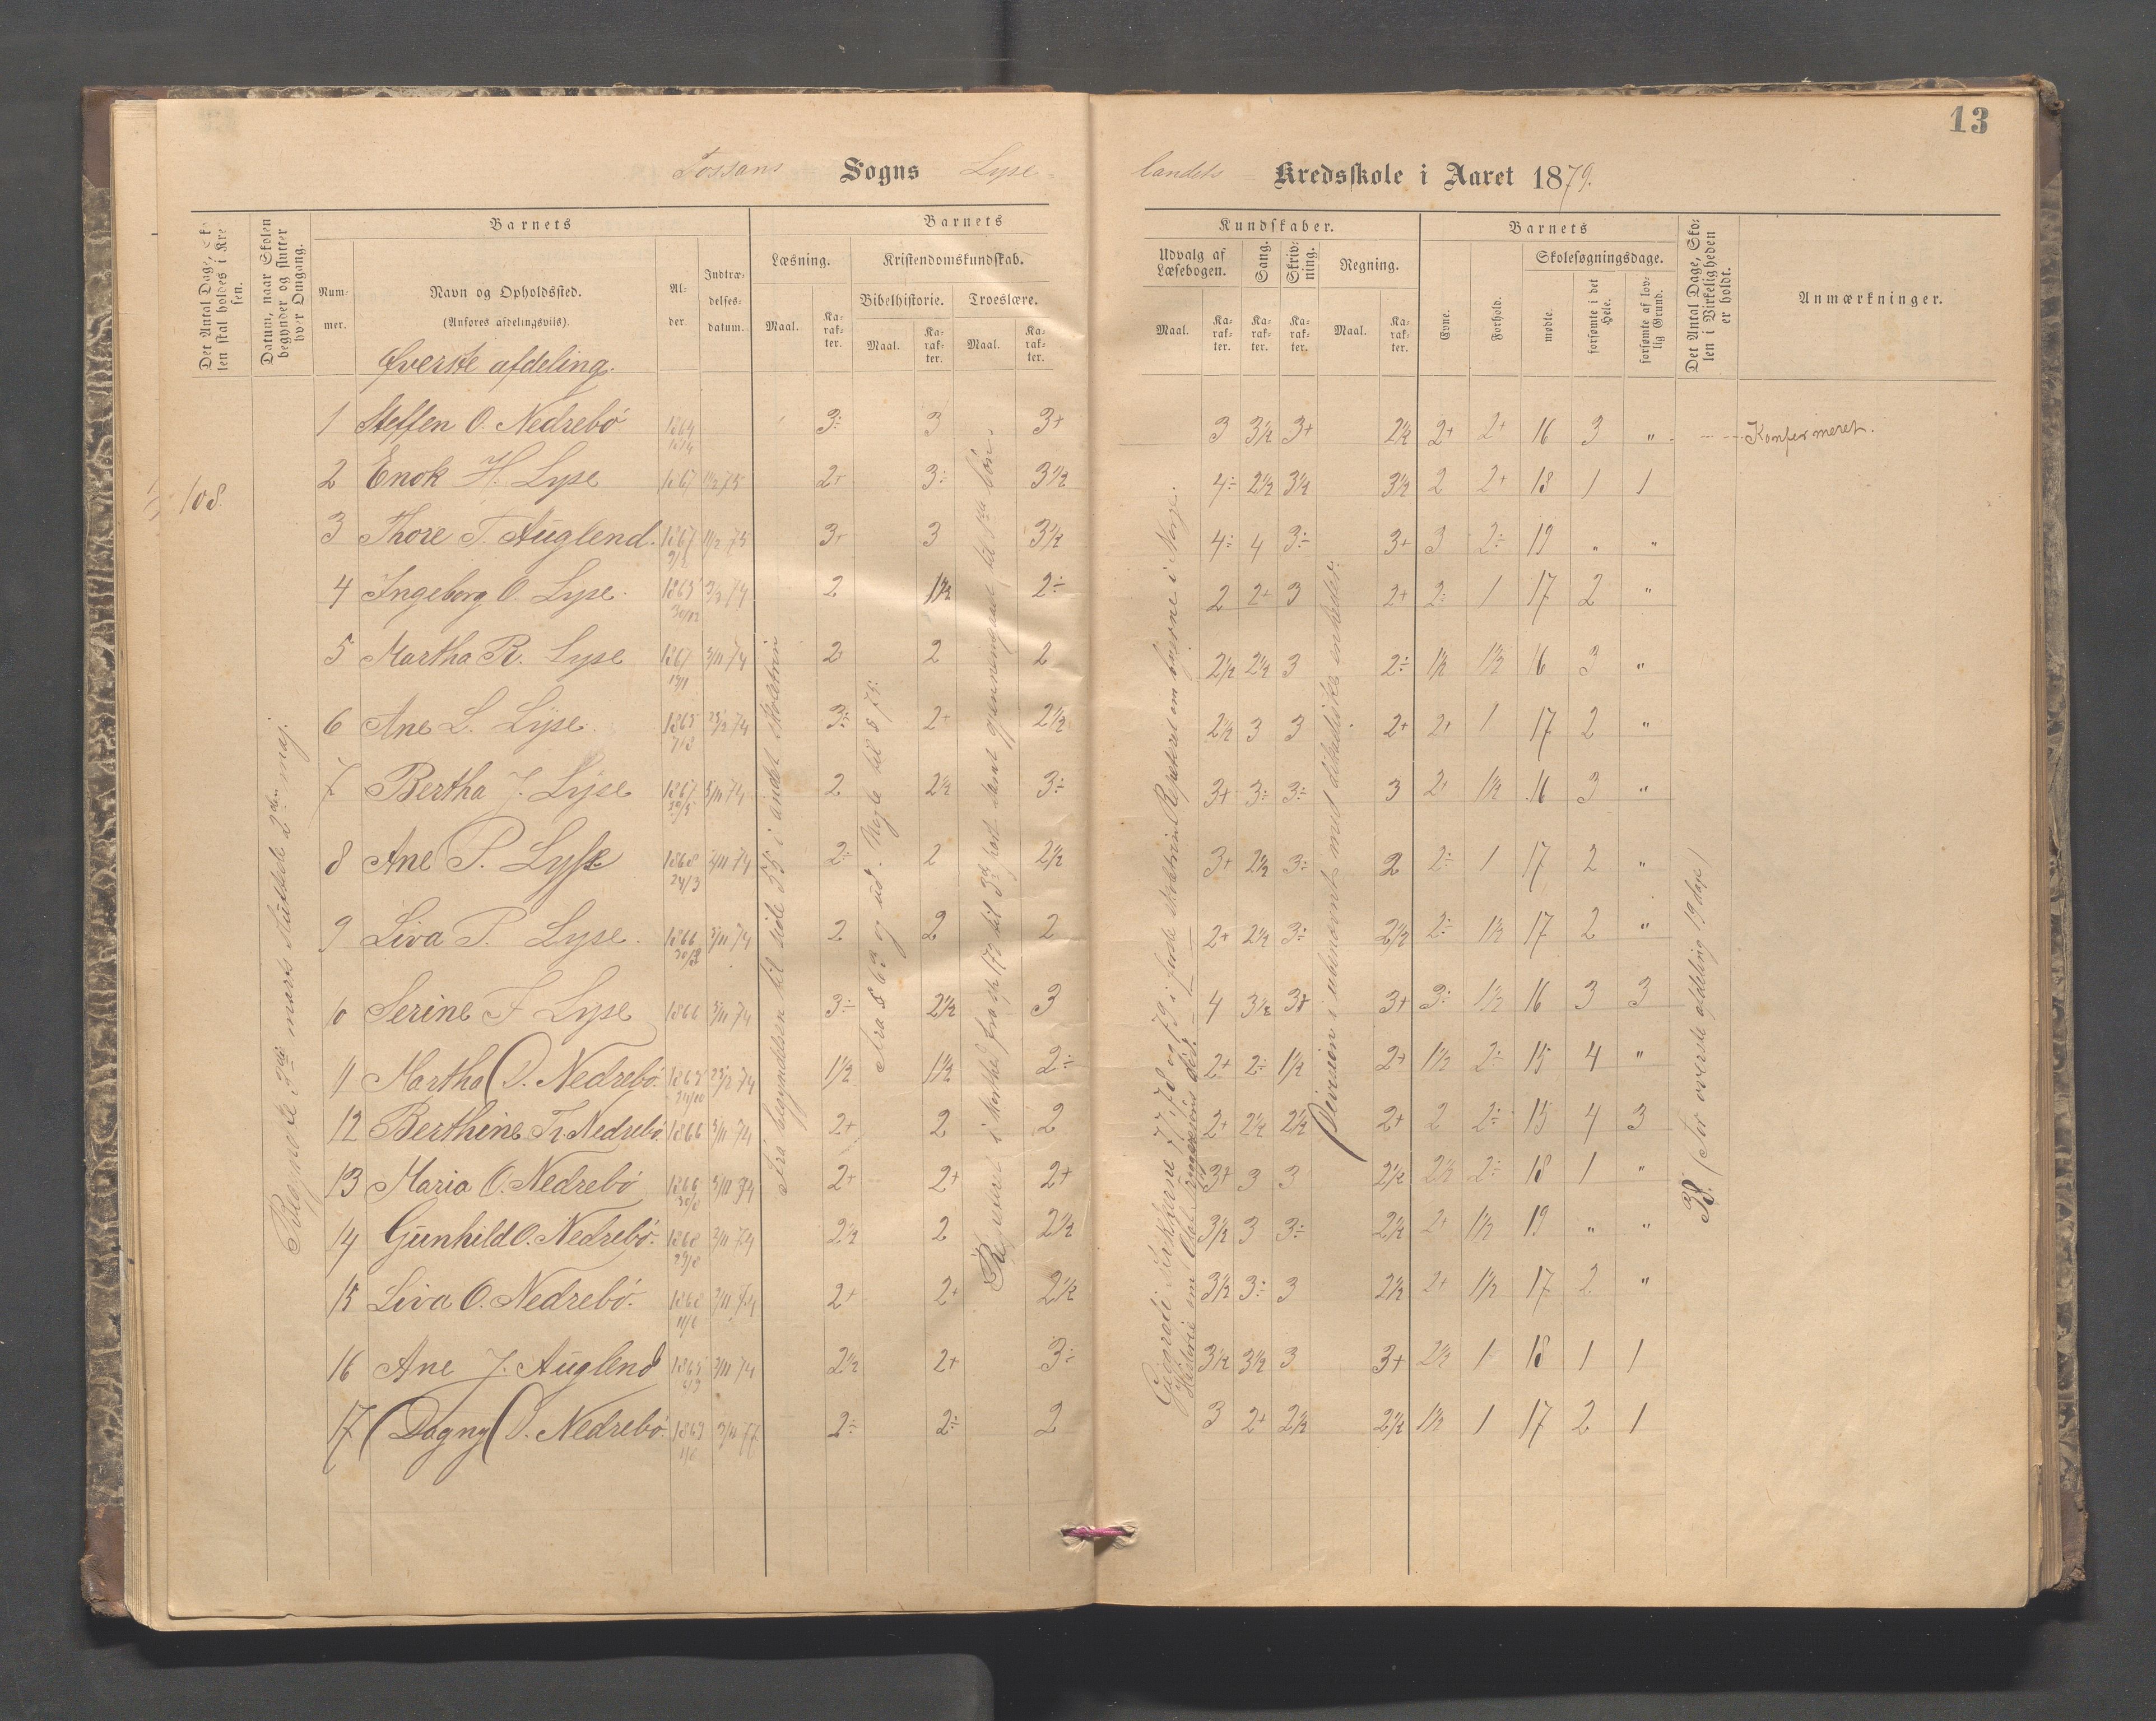 13
Fossans Sogns Lyse-
landets Kredsskole i Aaret 1879.
Det Antal Dage, Skolen skal holdes i Kredsen.
Datum, naar Skolen begynder og slutter hver Omgang.
Barnets
Nummer.
Navn og Opholdssted.
(Anføres afdelingsviis).
Alder.
Indtrædelsesdatum.
Barnets
Læsning.
Kristendomskundskab.
Maal.
Karakter.
Bibelhistorie.
Troeslære.
Maal. Karakter. Maal. Karakter.
Kundskaber.
Udvalg af Læsebogen.
Sang.
Skrivning.
Regning.
Maal. Karakter. Karakter. Karakter. Maal. Karakter.
Barnets
Evne.
Forhold.
Skolesøgningsdage.
mødte.
forsømte i det Hele.
forsømte af lovlig Grund.
Det Antal Dage, Skolen i Virkeligheden er holdt.
Anmærkninger.
Øverste afdeling.
1 Steffen O. Nedrebö 1864 3÷ 3 3+ 3 3½ 3+ 2½ 2+ 2+ 16 3 " Konfirmeret.
108.
2 Enok H. Lyse 1867 2+ 3÷ 3½ 4÷ 2½ 3½ 3½ 2 2+ 18 1 1
3 Thore T. Auglend. 1867 3+ 3 3½ 4÷ 4 3÷ 3+ 3 2÷ 19 " "
4 Ingeborg O. Lyse. 1865 2 1½ 2÷ 2 2+ 3 2+ 2÷ 1 17 2 "
5 Martha R. Lyse 1867 3/11 74 2+ 2 2 2½ 2½ 3 2÷ 1½ 1½ 16 3 "
6 Ane L. Lyse. 1865 3÷ 2+ 2½ 2½ 3 3 2+ 2+ 1 17 2 "
7 Bertha J. Lyse 1867 3/11 74 2 2½ 3÷ 3+ 3÷ 3÷ 3 2+ 1½ 16 3 "
8 Ane P. Lyse 1868 3/11 74 2÷ 2 2½ 3+ 2½ 3÷ 2 2÷ 1 17 2 "
9 Liva P. Lyse. 1866 3/11 74 2 2 2 2+ 2½ 3÷ 2½ 2÷ 1½ 17 2 "
10 Serine T Lyse 1866 3/11 74 3÷ 2½ 3 4 3½ 3+ 3+ 3÷ 1½ 16 3 3
11 Martha O. Nedrebö. 1865 1½ 1½ 2÷ 2+ 2÷ 1½ 2+ 1½ 2÷ 15 4 "
12 Berthine Tr. Nedrebö. 1866 3/11 74 2+ 2 2 2+ 2½ 2½ 2+ 2 2÷ 15 4 3
13 Maria O. Nedrebö 1866 3/11 74 2+ 2+ 2+ 3+ 3 3 2½ 2½ 2÷ 18 1 "
14 Gunhild O. Nedrebö. 1868 3/11 74 2½ 2 2½ 3½ 3 3÷ 2½ 2+ 1½ 19 " "
15 Liva O. Nedrebö. 1868 3/11 74 2+ 2+ 2½ 3½ 3÷ 3 2½ 2+ 1½ 17 2 "
16 Ane J. Auglend 1865 3/11 74 2½ 2+ 3÷ 3½ 3½ 3 3+ 2½ 1 18 1 1
17 Dagny O. Nedrebö. 1863 3/11 77 2÷ 2÷ 2 3 2+ 2½ 2½ 1½ 1 17 2 1
Begyndte 3die marts Sluttede 2den maj.
Fra begyndelsen til side 55 i andet skoletrin
Fra § 63 og ud. Nogle til § 75.
38. (For øverste afdeling 19 dage)